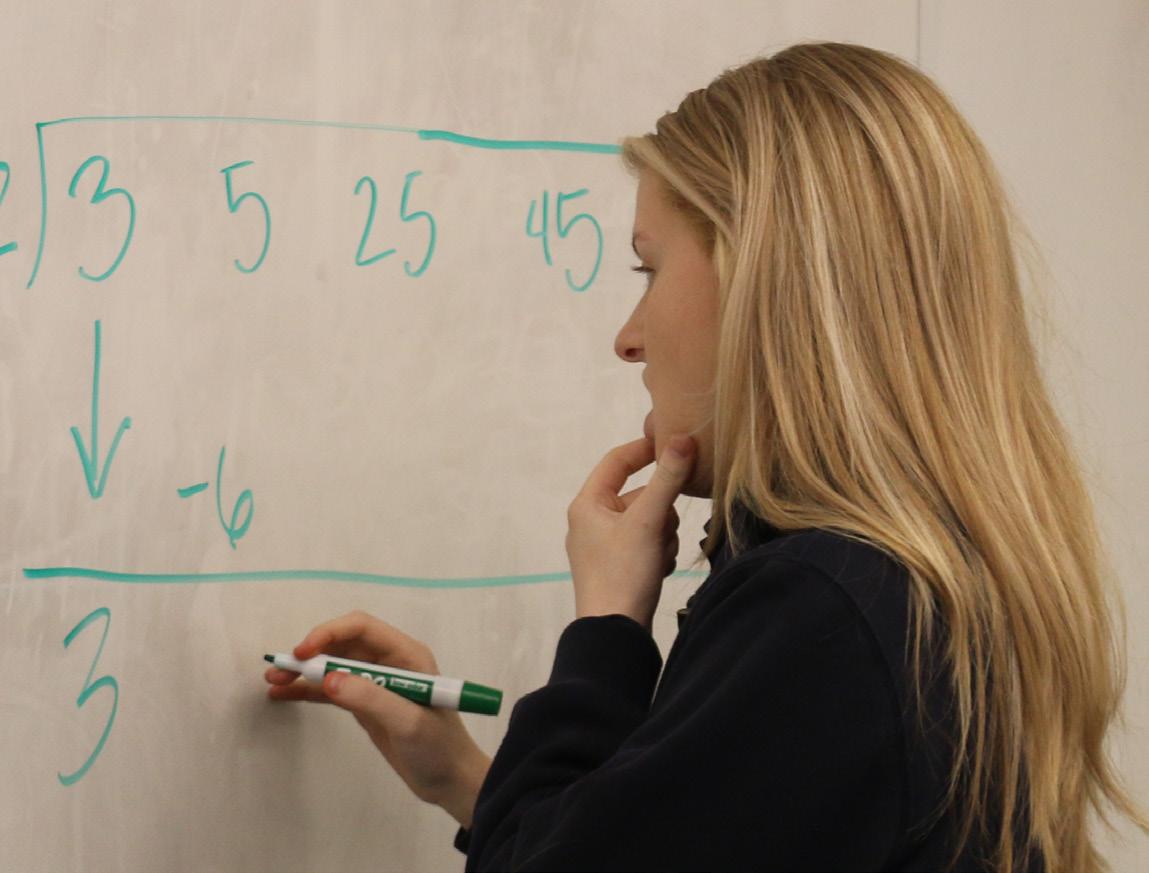 2 3 5 25 45
-6
3